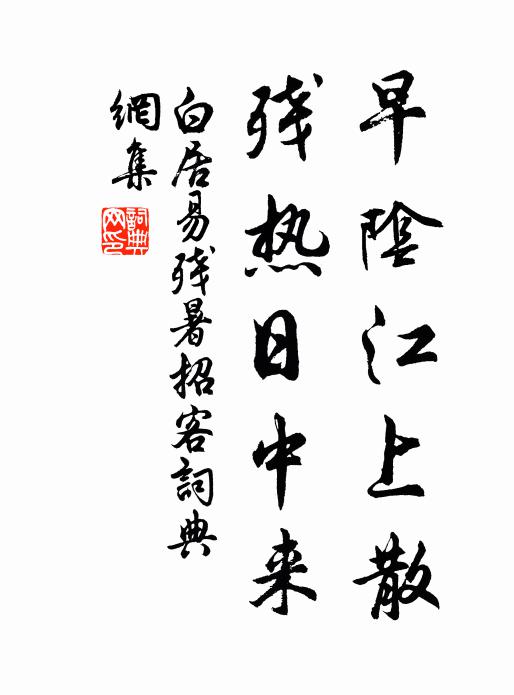 早陰江上散
残热日中来
白居易残暑招客詞典
網集
詞典网印